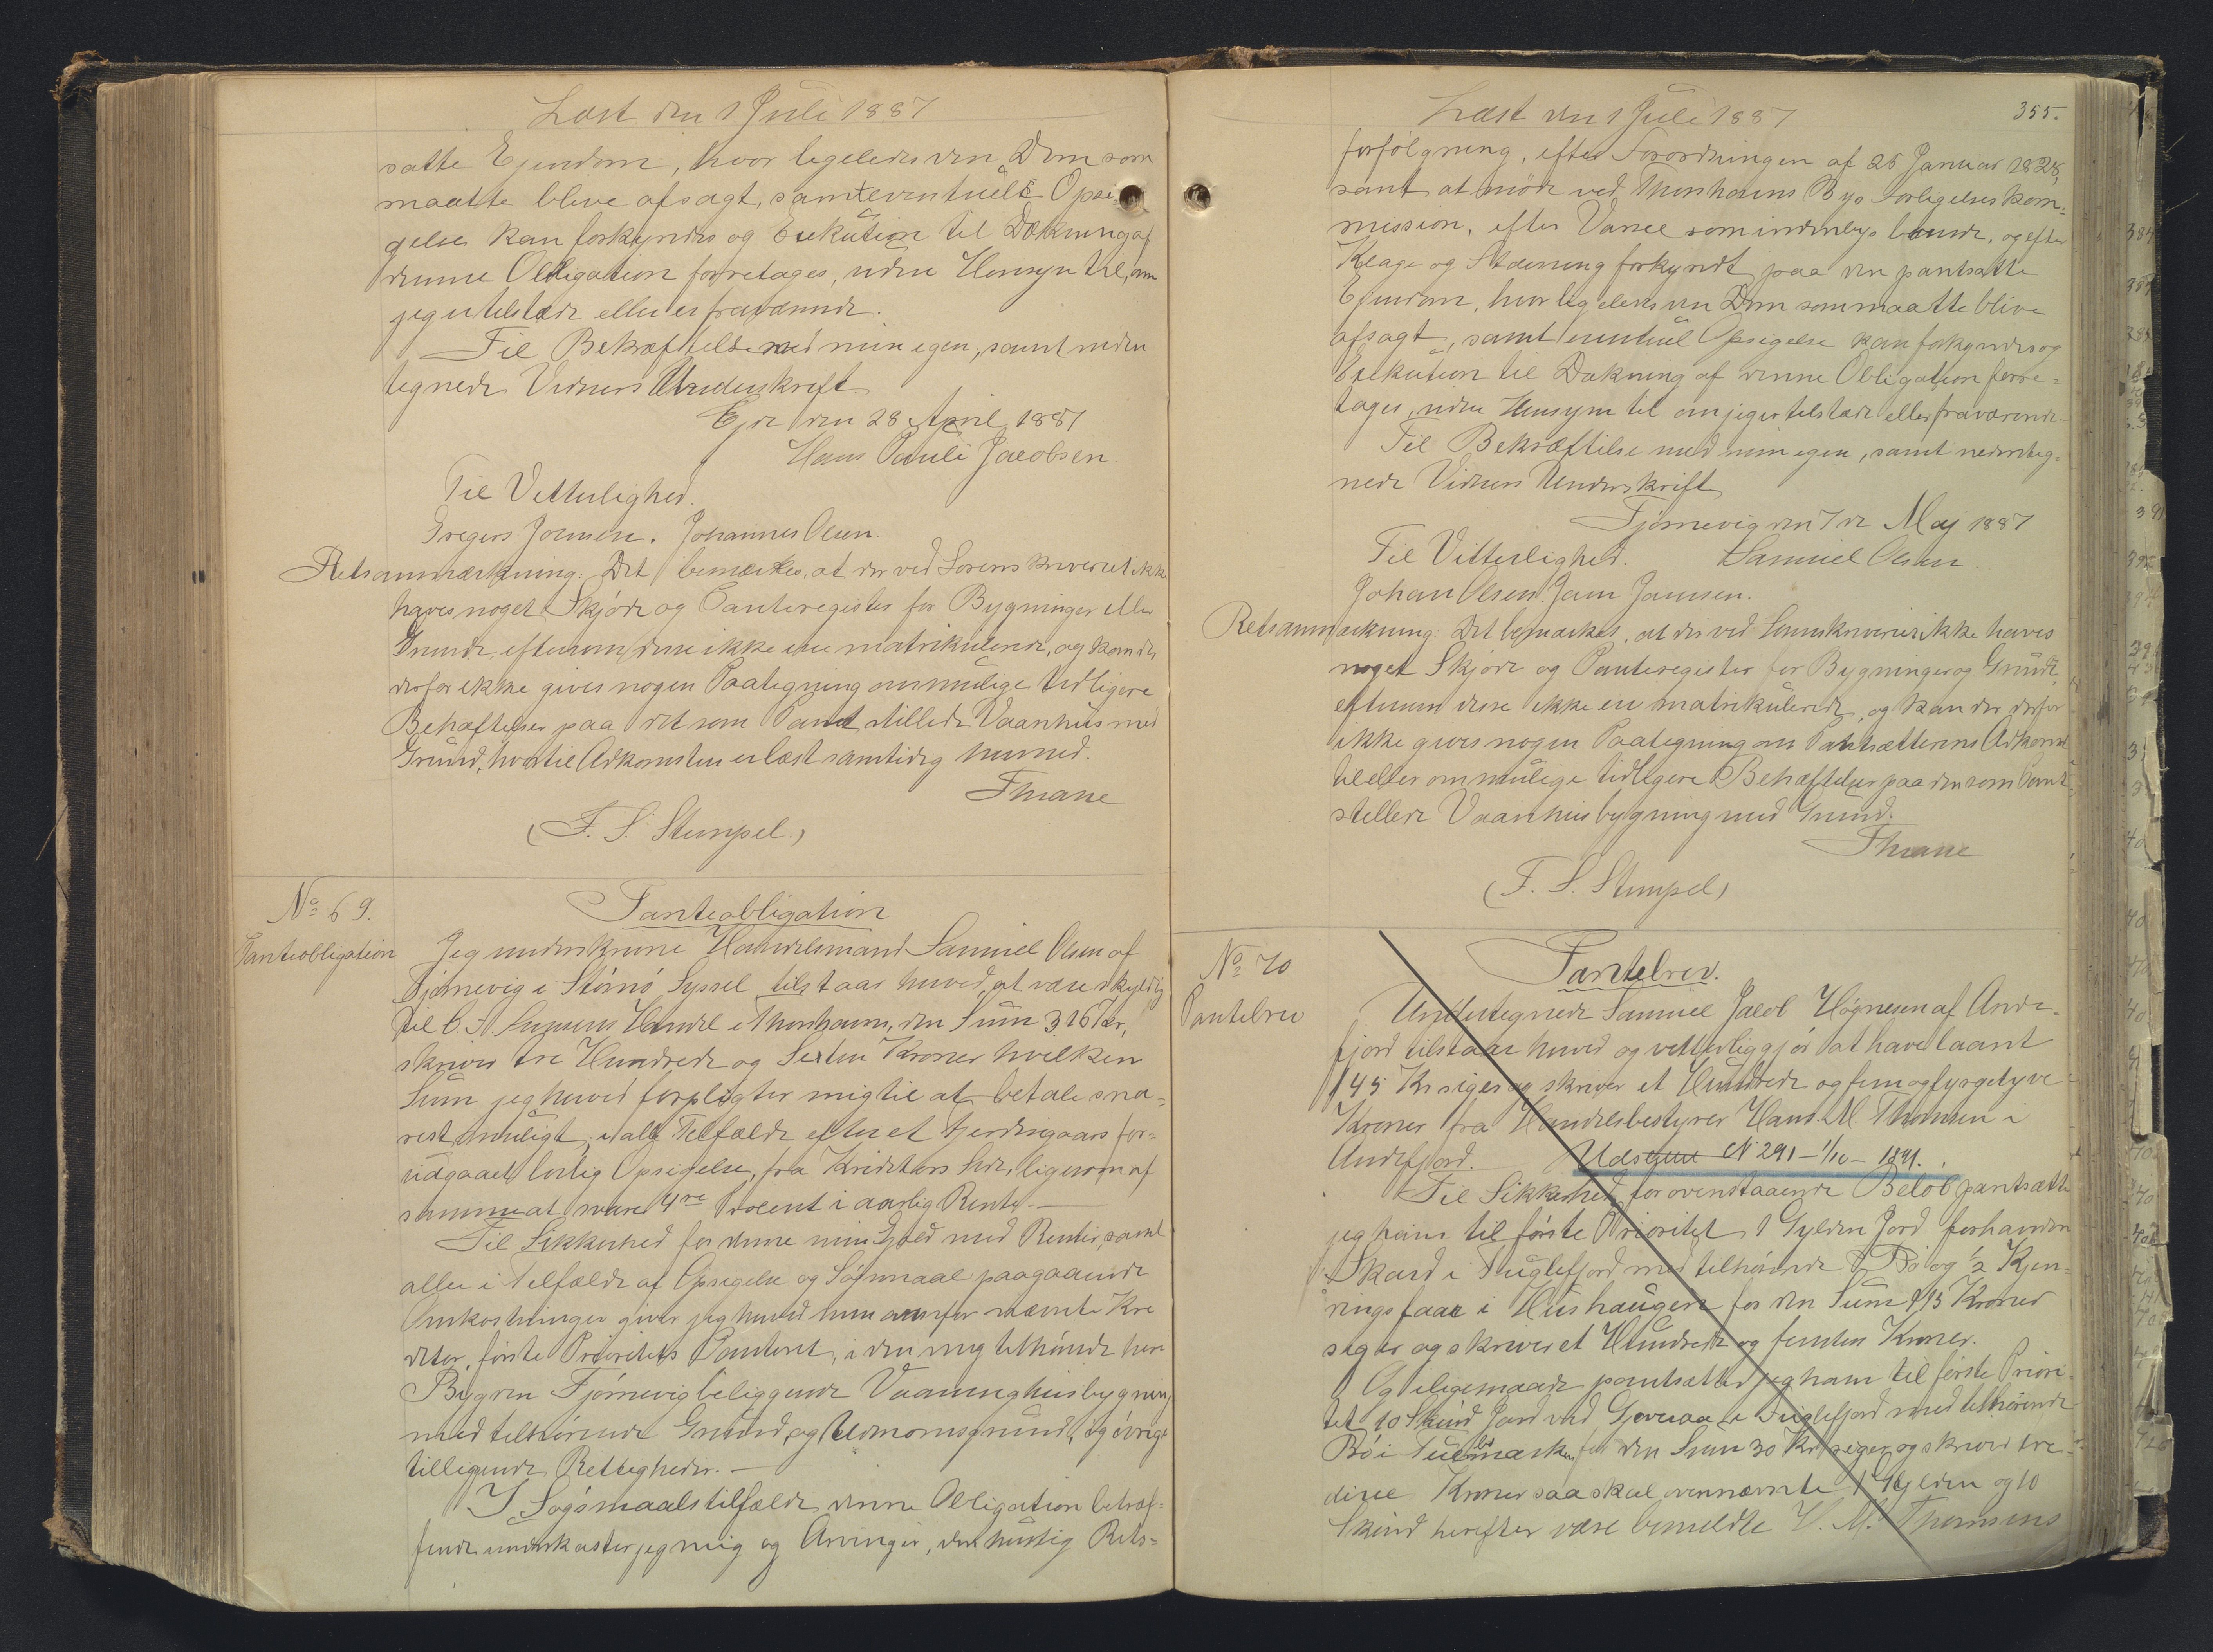 Læst den 1 Juli 1887
satte Ejendom, hvor ligeledes den Dom som
maatte blive afsagt, samt eventuelt Opsi-
gelse kan forkyndes og Exekution til Dækning af
denne Obligation foretages, uden Hensyn til, om
jeg er tilstede eller er fraværende.
Til Bekræftelse med min egen, samt neden
tegnede Vidners Underskrift.
Ejde den 28 April 1887
Hans Pauli Jacobsen.
Til Vitterlighed.
Gregers Joensen. Johannes Olsen.
Retsanmærkning: Det bemærkes, at der ved Sorenskriveriet ikke
haves noget Skjøde og Panteregister for Bygninger eller
Grunde, eftersom disse ikke ere matrikulerede, og kan der
derfor ikke gives nogen Paategning om mulige tidligere
Behæftelser paa det som Pant stillede Vaanhus med
Grund, hvortil Adkomsten er læst samtidig hermed.
Thrane
(F. S. Stempel.)
No 69.
Panteobligation
Panteobligation
Jeg underskrevne Handelsmand Samuel Olsen af
Tjørnevig i Strømø Syssel tilstaar herved, at være skyldig
til C. S. Handel i Thorshavn, den Sum 316 Kr,
skriver tre Hundrede og Sexten Kroner hvilken
Sum jeg herved forpligter mig til at betale sna-
rest muligt, i alle Tilfælde efter et fjerdingaars for-
udgaaet lovlig Opsigelse, fra Kreditors Side, ligesom af
samme at svare 4re Procent i aarlig Rente.—
Til Sikkerhed for denne min Gjæld med Renter, samt
alle i Tilfælde af Opsigelse og Søgsmaal paagaaende
Omkostninger giver jeg herved min ovenfor nævnte Kre
ditor, første Prioritets Panteret, i den mig tilhørende her i
Bygden Tjørnevig beliggende Vaaninghusbygning
med tilhørende Grund, og Udenomsgrund, og øvrige
tilliggende Rettigheder.—
I Søgsmaalstilfælde denne Obligation betræf-
fende underkaster jeg mig og Arvinger, den hurtig Rets-
Læst den 1 Juli 1887
355.
forfølgning, efter Forordningen af 25 Januar 1828,
samt at møde ved Thorshavns Byes Forligelseskom-
mission, efter Varsel som indenbyes boende, og efter
Klage og Stævning forkyndt paa den pantsatte
Ejendom, hvor ligeledes den Dom som maatte blive
afsagt, samt eventuel Opsigelse kan forkyndes og
Exekution til Dækning af denne Obligation fore-
tages, uden Hensyn til om jeg er tilstede eller fraværende.
Til Bekræftelse med min egen, samt nedenteg-
nede Vidners Underskrift
Tjørnevig den 7de Maj 1887
Til Vitterlighed. Samuel Olsen
Johan Olsen. Joen Joensen.
Retsanmærkning: Det bemærkes, at der ved Sorenskriveriet ikke haves
noget Skjøde og Panteregister for Bygninger og Grunde
eftersom disse ikke ere matrikulerede, og kan der derfor
ikke gives nogen Paategning om Pantsætterens Adkomst
til eller om mulige tidligere Behæftelser paa den som Pant
stillede Vaanhusbygning med Grund.
Thrane
(F. S. Stempel)
No 70
Pantebrev
Pantebrev.
Undertegnede Samuel Jacob Høgnesen af Ande-
fjord tilstaar herved og vitterliggjør at have laant
145 Kr siger og skriver et Hundrede og fem og fyrgetyve
Kroner fra Handelsbestyrer Hans M Thomsen i
Andefjord. Udslettet N 291 – 1/10 – 1891.
Til Sikkerhed for ovenstaaende Beløb pantsætter
jeg hans til første Prioritet 1 Gylden Jord forhenden
Skard i Fuglefjord med tilhørende Bø og 1/2 Kjen-
dingsfaar i Hushaugen for den Sum 115 Kroner
siger og skriver et Hundrede og femten Kroner.
Og iligemaade pantsætter jeg ham til første Priori-
tet 10 Skind Jord ved Gjoveraa i Fuglefjord med tilhørende
Bø i for den Sum 30 Kr siger og skriver tre-
dive Kroner saa skal ovennævnte 1 Gylden og 10
Skind herefter være bemeldte H. M. Thomsens